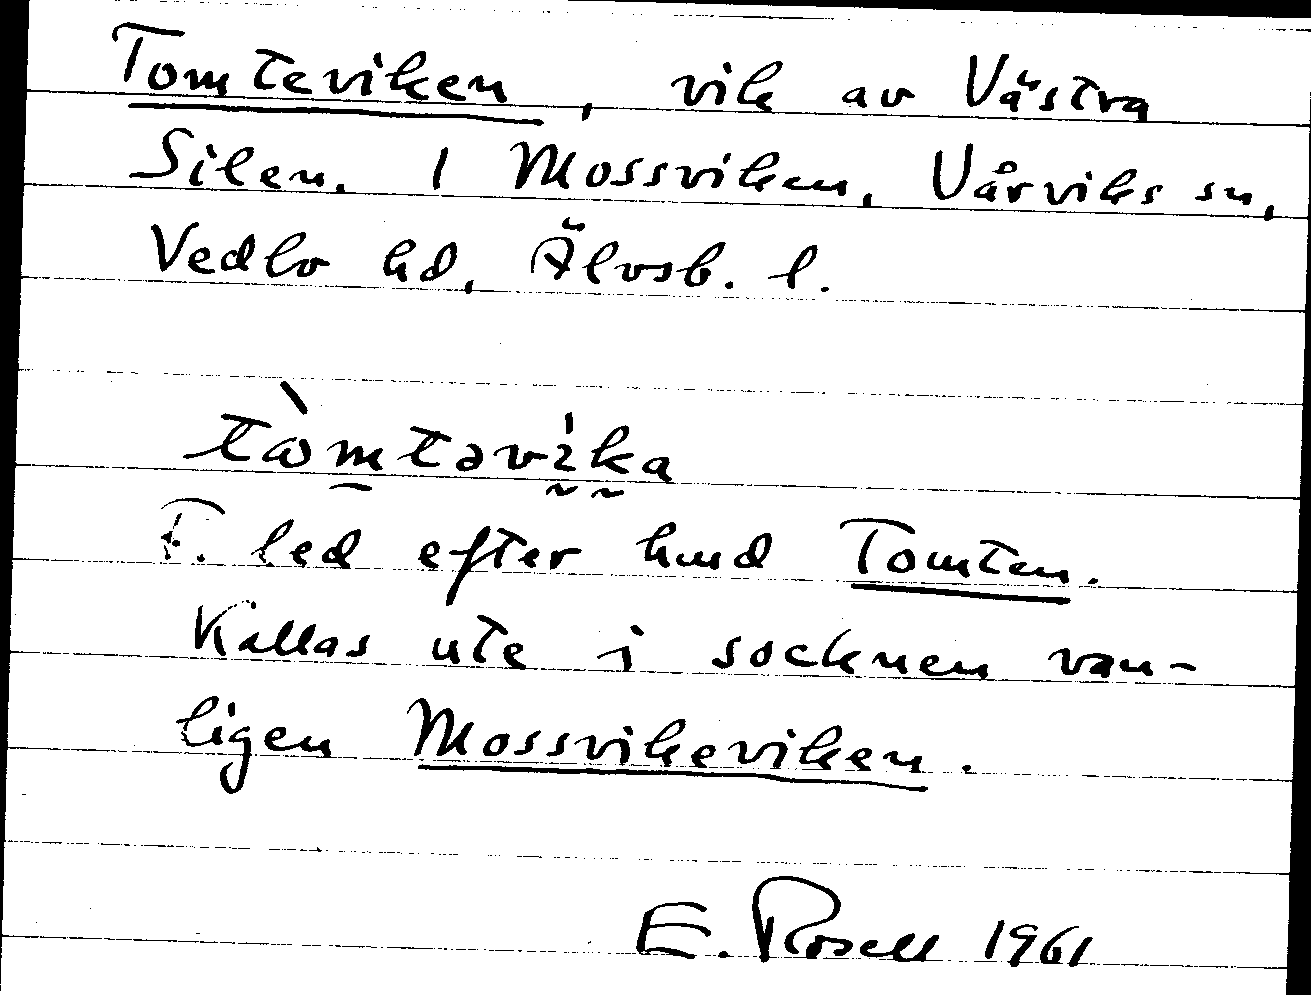 Tomteviken, vik av Västra
Silen. I Mossviken, Vårviks sn,
Vedbo hd, Älvsb. l.
tòmtəvìka
F. led efter hmd Tomten.
Kallas ute i socknen van-
ligen Mossvikeviken.
E. Rosell 1961